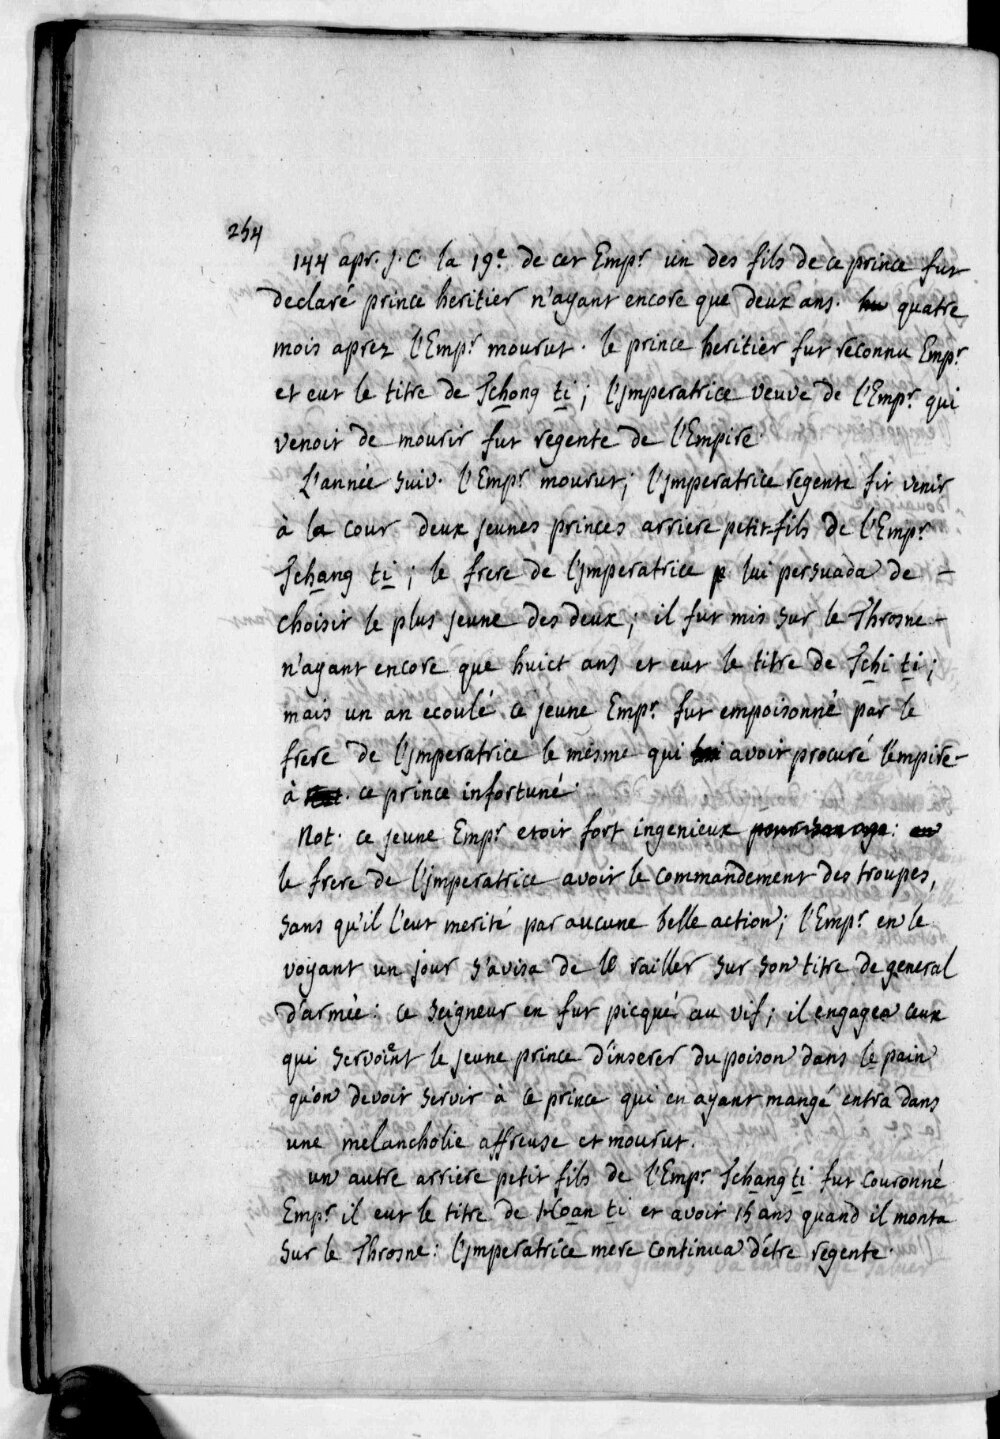 254
144 apr. J. C. la 19e de cet Empr un des fils de ce prince fut
declaré prince heritier n'ayant encore que deux ans. quatre
mois aprez l'Empr mourut. le prince heritier fut reconnu Empr
et eut le titre de Tchong ti; l'jmperatrice veuve de l'Empr qui
venoit de mourir fut regente de l'Empire.
L'année suiv. l'Empr mourut; l'jmperatrice regente fit venir
à la cour deux jeunes princes arriere petit-fils de l'Empr
Tchang ti; le frere de l'jmperatrice lui persuada de -
choisir le plus jeune des deux; il fut mis sur le Throsne -
n'ayant encore que huict ans et eut le titre de Tchi ti;
mais un an ecoulé ce jeune Empr fut empoisonné par le
frere de l'jmperatrice le mésme qui lui avoit procuré l'empire -
à ce prince infortuné.
Not. ce jeune Empr etoit fort ingenieux pour son age: en
le frere de l'jmperatrice avoit le commandement des troupes,
sans qu'il l'eut merité par aucune belle action; l'Empr en le
voyant un jour s'avisa de le railler sur son titre de general
d'armée: ce seigneur en fut picqué au vif; il engagea ceux
qui servoient le jeune prince d'inserer du poison dans le pain
qu'on devoit servir à ce prince qui en ayant mangé entra dans
une melancholie affreuse et mourut.
un autre arriere petit fils de l'Empr Tchang ti fut couronné
Empr il eut le titre de Hoan ti et avoit 15 ans quand il monta
sur le Throsne: l'jmperatrice mere continua d'étre regente.